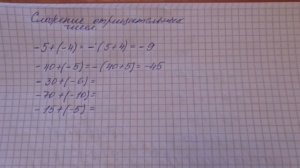 Сложение отрицательных
чисел.
-5+(-4)=-(5+4)=-9
-40+(-5)=-(40+5)=-45
-30+(-6)=
-70+(-10)=
-15+(-5)=